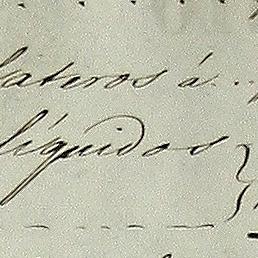 lateros á..
líquidos